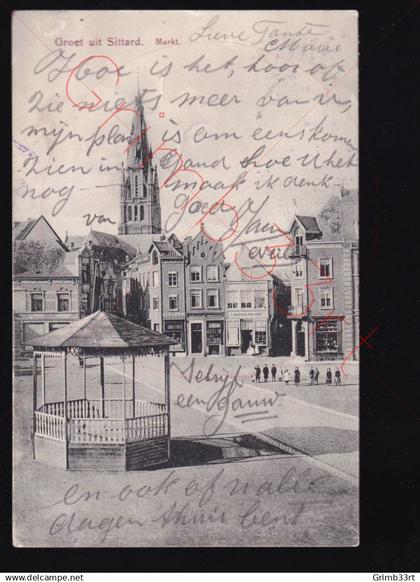 Groet uit Sittard. Markt.
Lieve Tante
Marie
Hoe is het, hoor of
zie niets meer van u,
mijn plan is om eens komen
zien in Gand hoe U het
nog maak ik denk
van gaan
Schrijf
een gauw
en ook of u alle
dagen thuis bent
© delcampe.net Grimb33rt